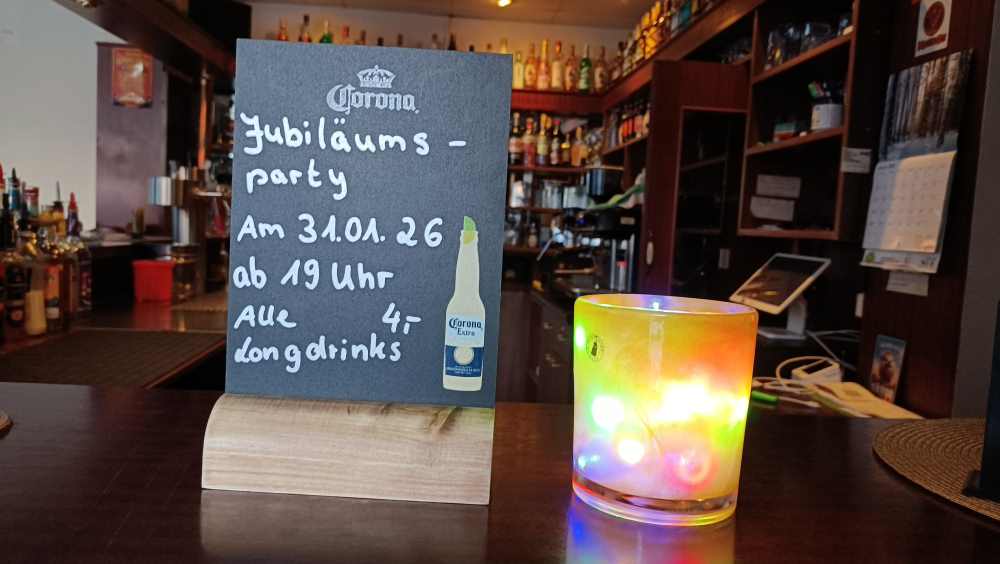 Corona
Jubiläums-
party
Am 31.01.26
ab 19 Uhr
Alle 4,-
Longdrinks
Corona
Extra